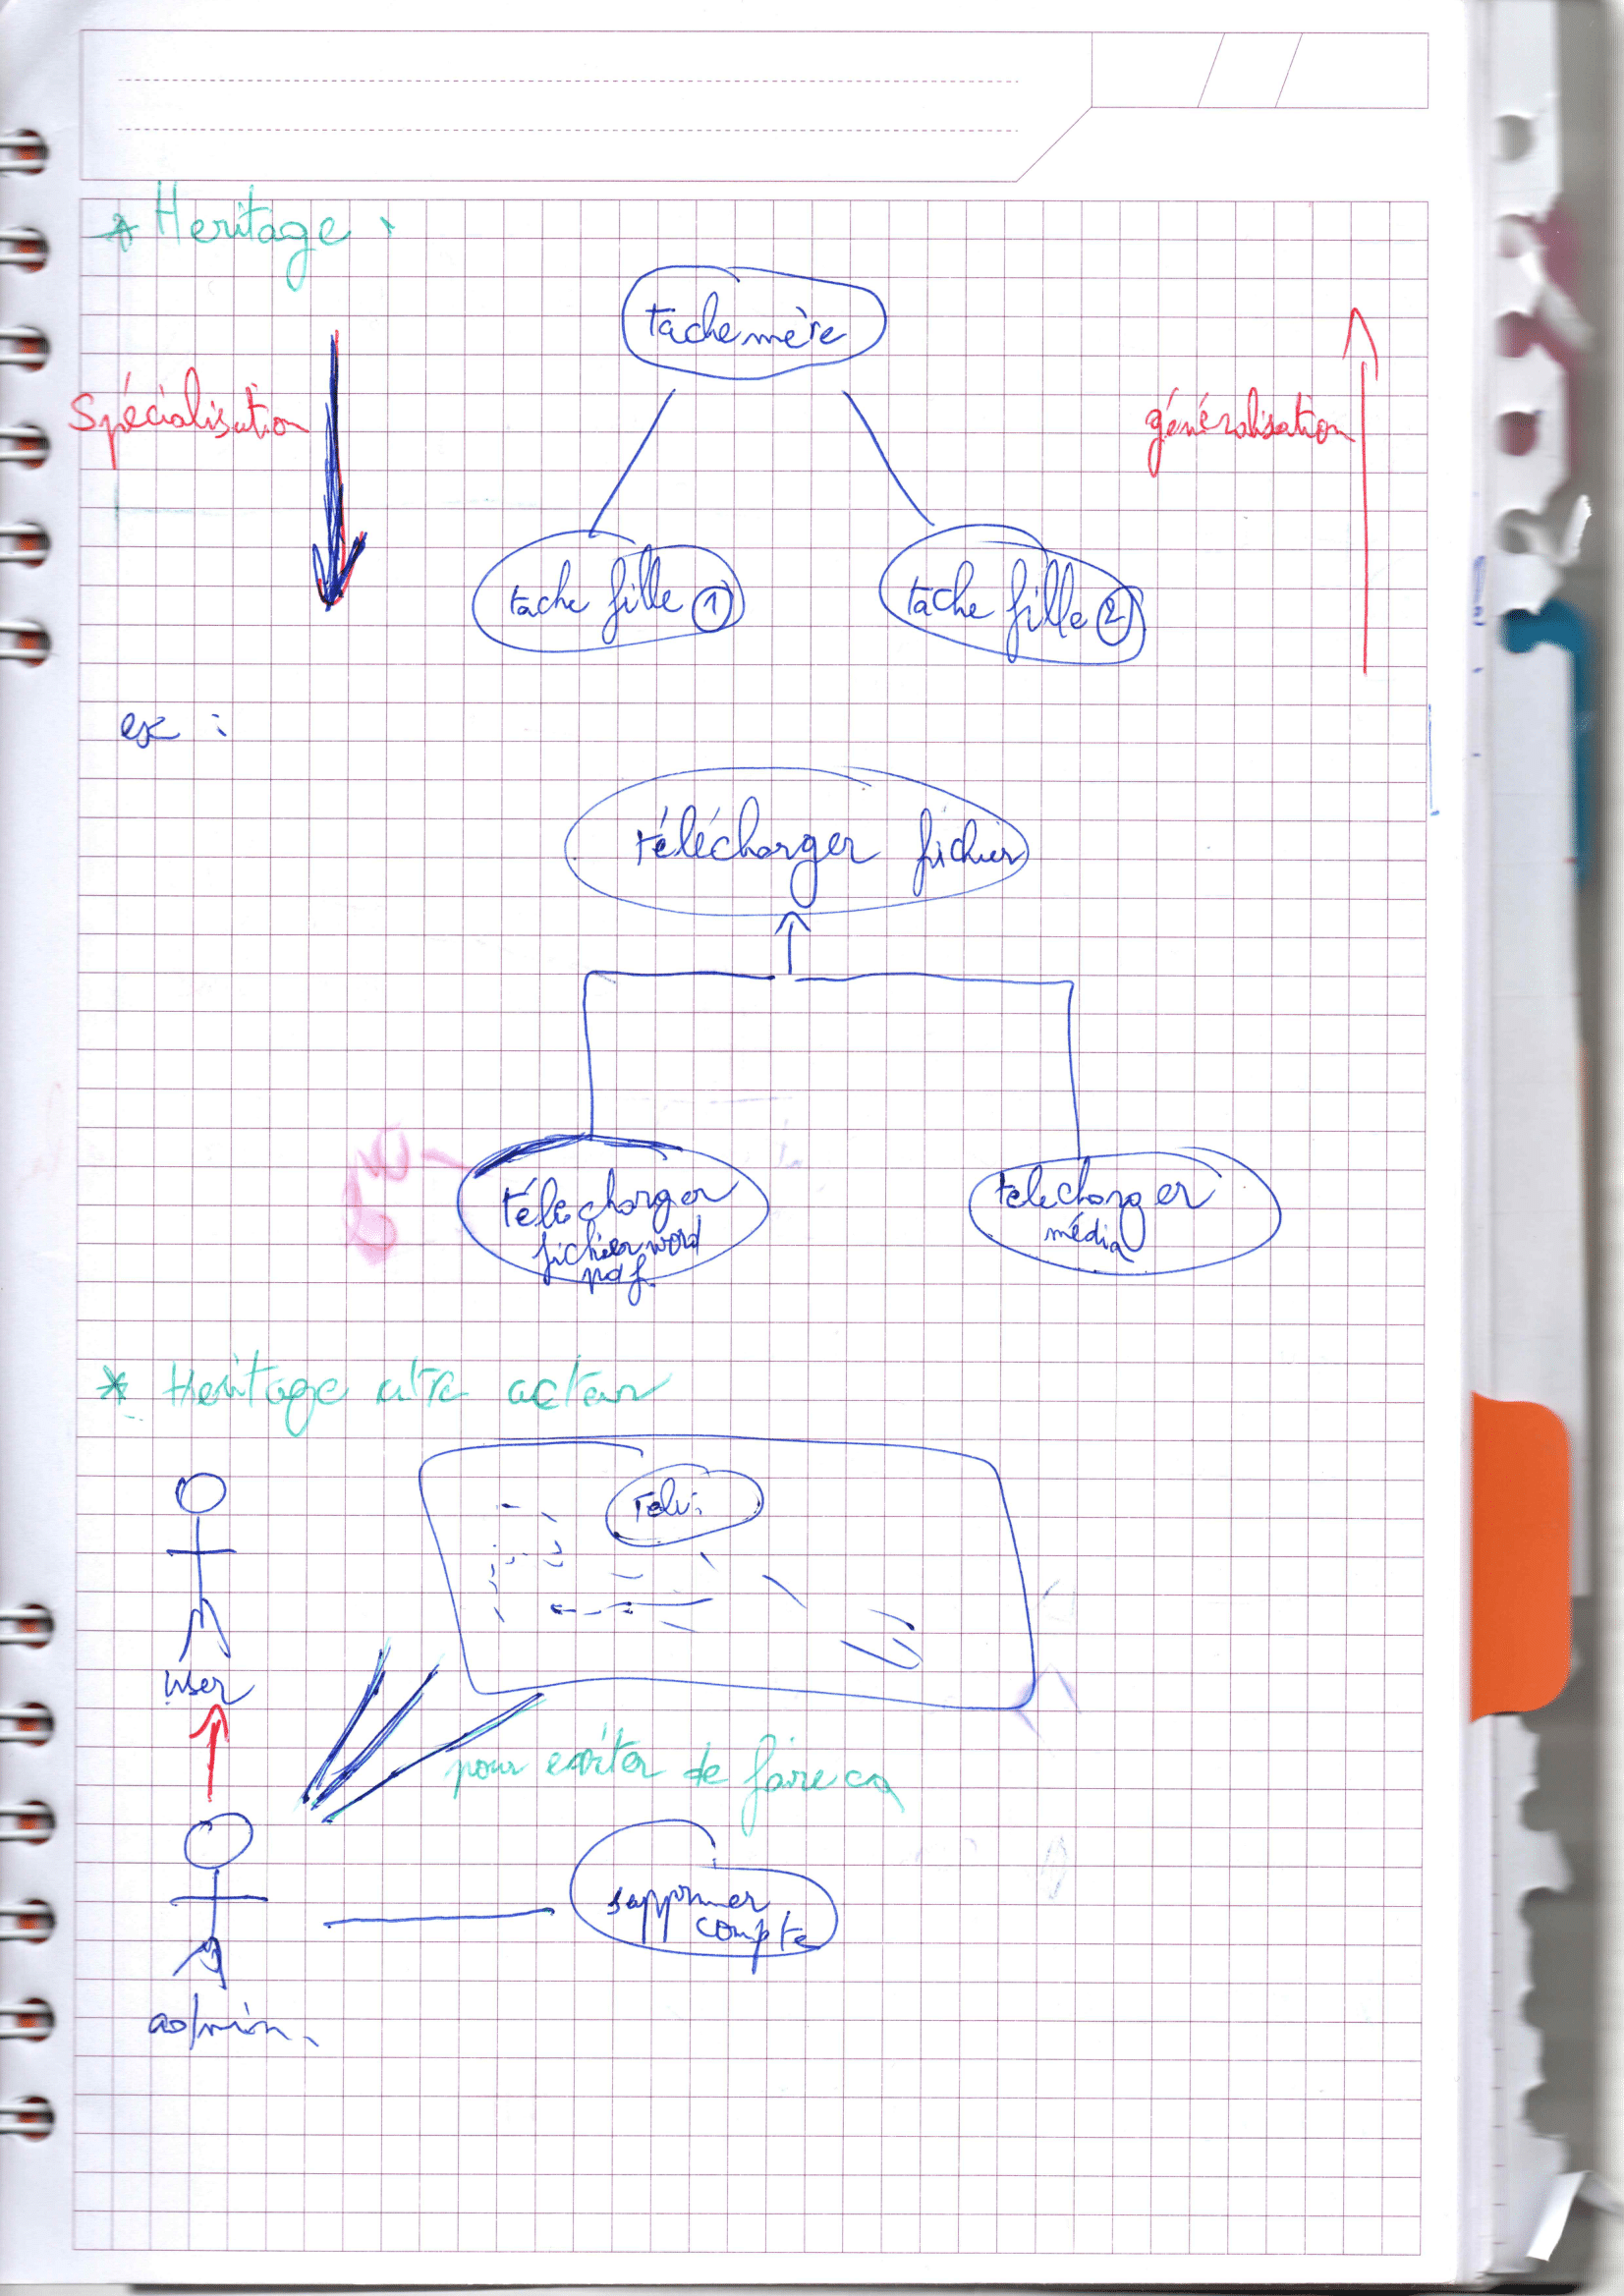 * Heritage :
tache mère
Spécialisation
généralisation
tache fille ①
tache fille ②
ex :
télécharger fichier
télécharger
fichier word
pdf
telecharger
média
* Heritage entre acteur
user
pour eviter de faire ca
supprimer
compte
admin.